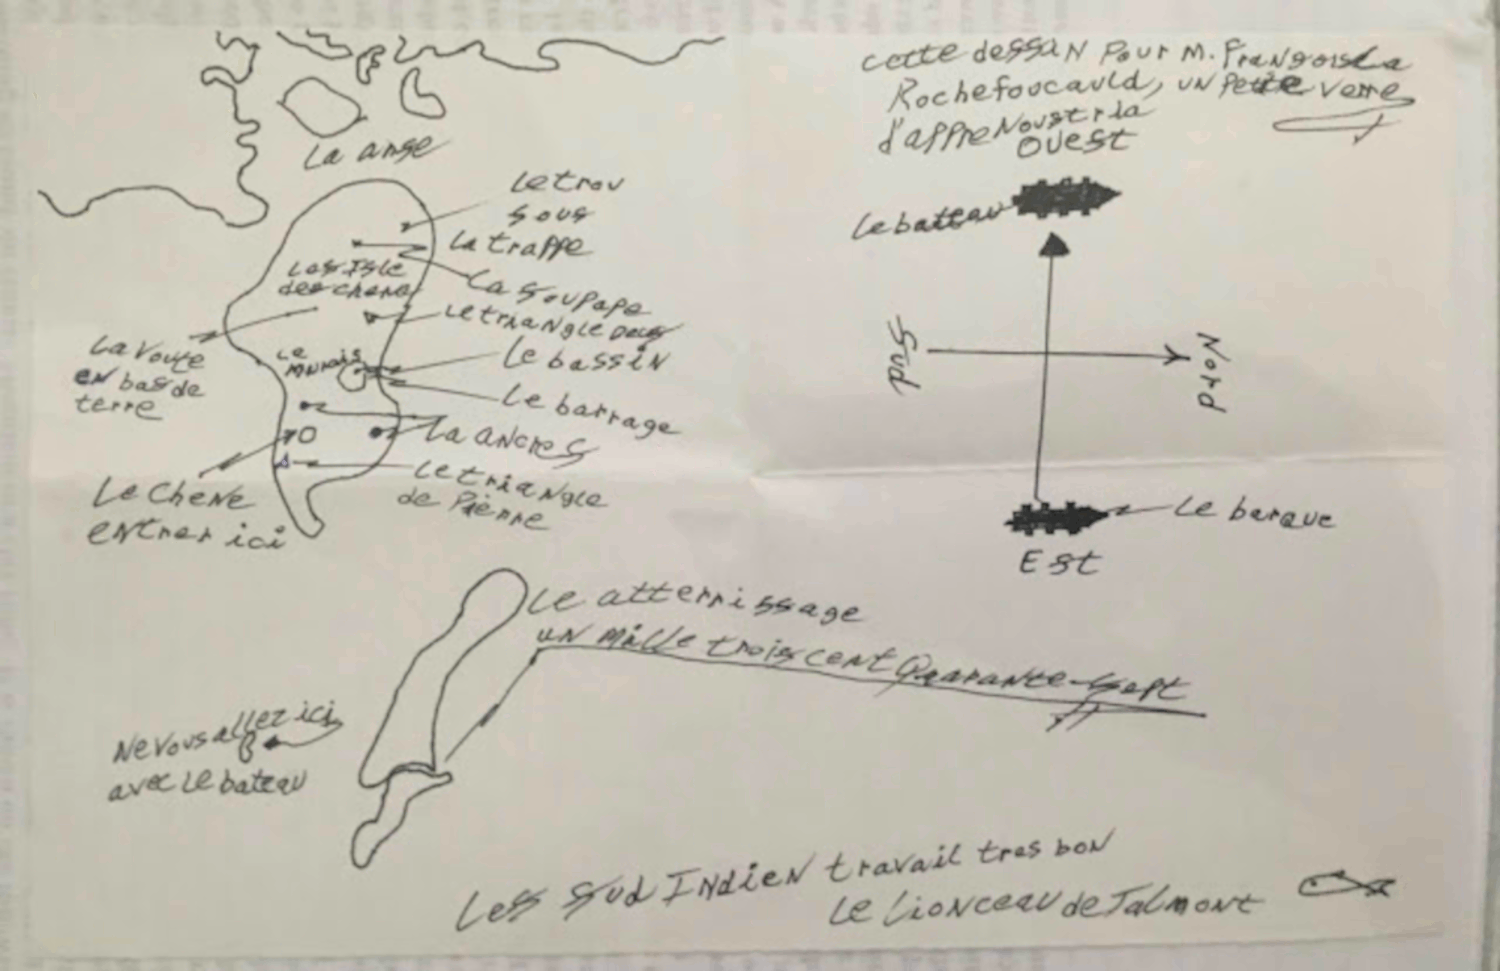 cette dessan Pour M. Françoisla
Rochefoucauld, un Petite verre
d'appre Noustrla
ouest
La anse
Le trou
sous
La trappe
Le bateau
Les Isle
des chene
La soupape
Le triangle Deus
Sud
Nord
La voute
en bas de
terre
Le
Marais
Le bassin
Le barrage
La ancres
Le Chene
entrer ici
Le triangle
de Pierre
Le barque
Est
Le atterrissage
un mille trois cent Quarante-Sept
Ne vous allez ici
avec Le bateau
Les Sud Indien travail tres bon
Le Lionceau de Talmont